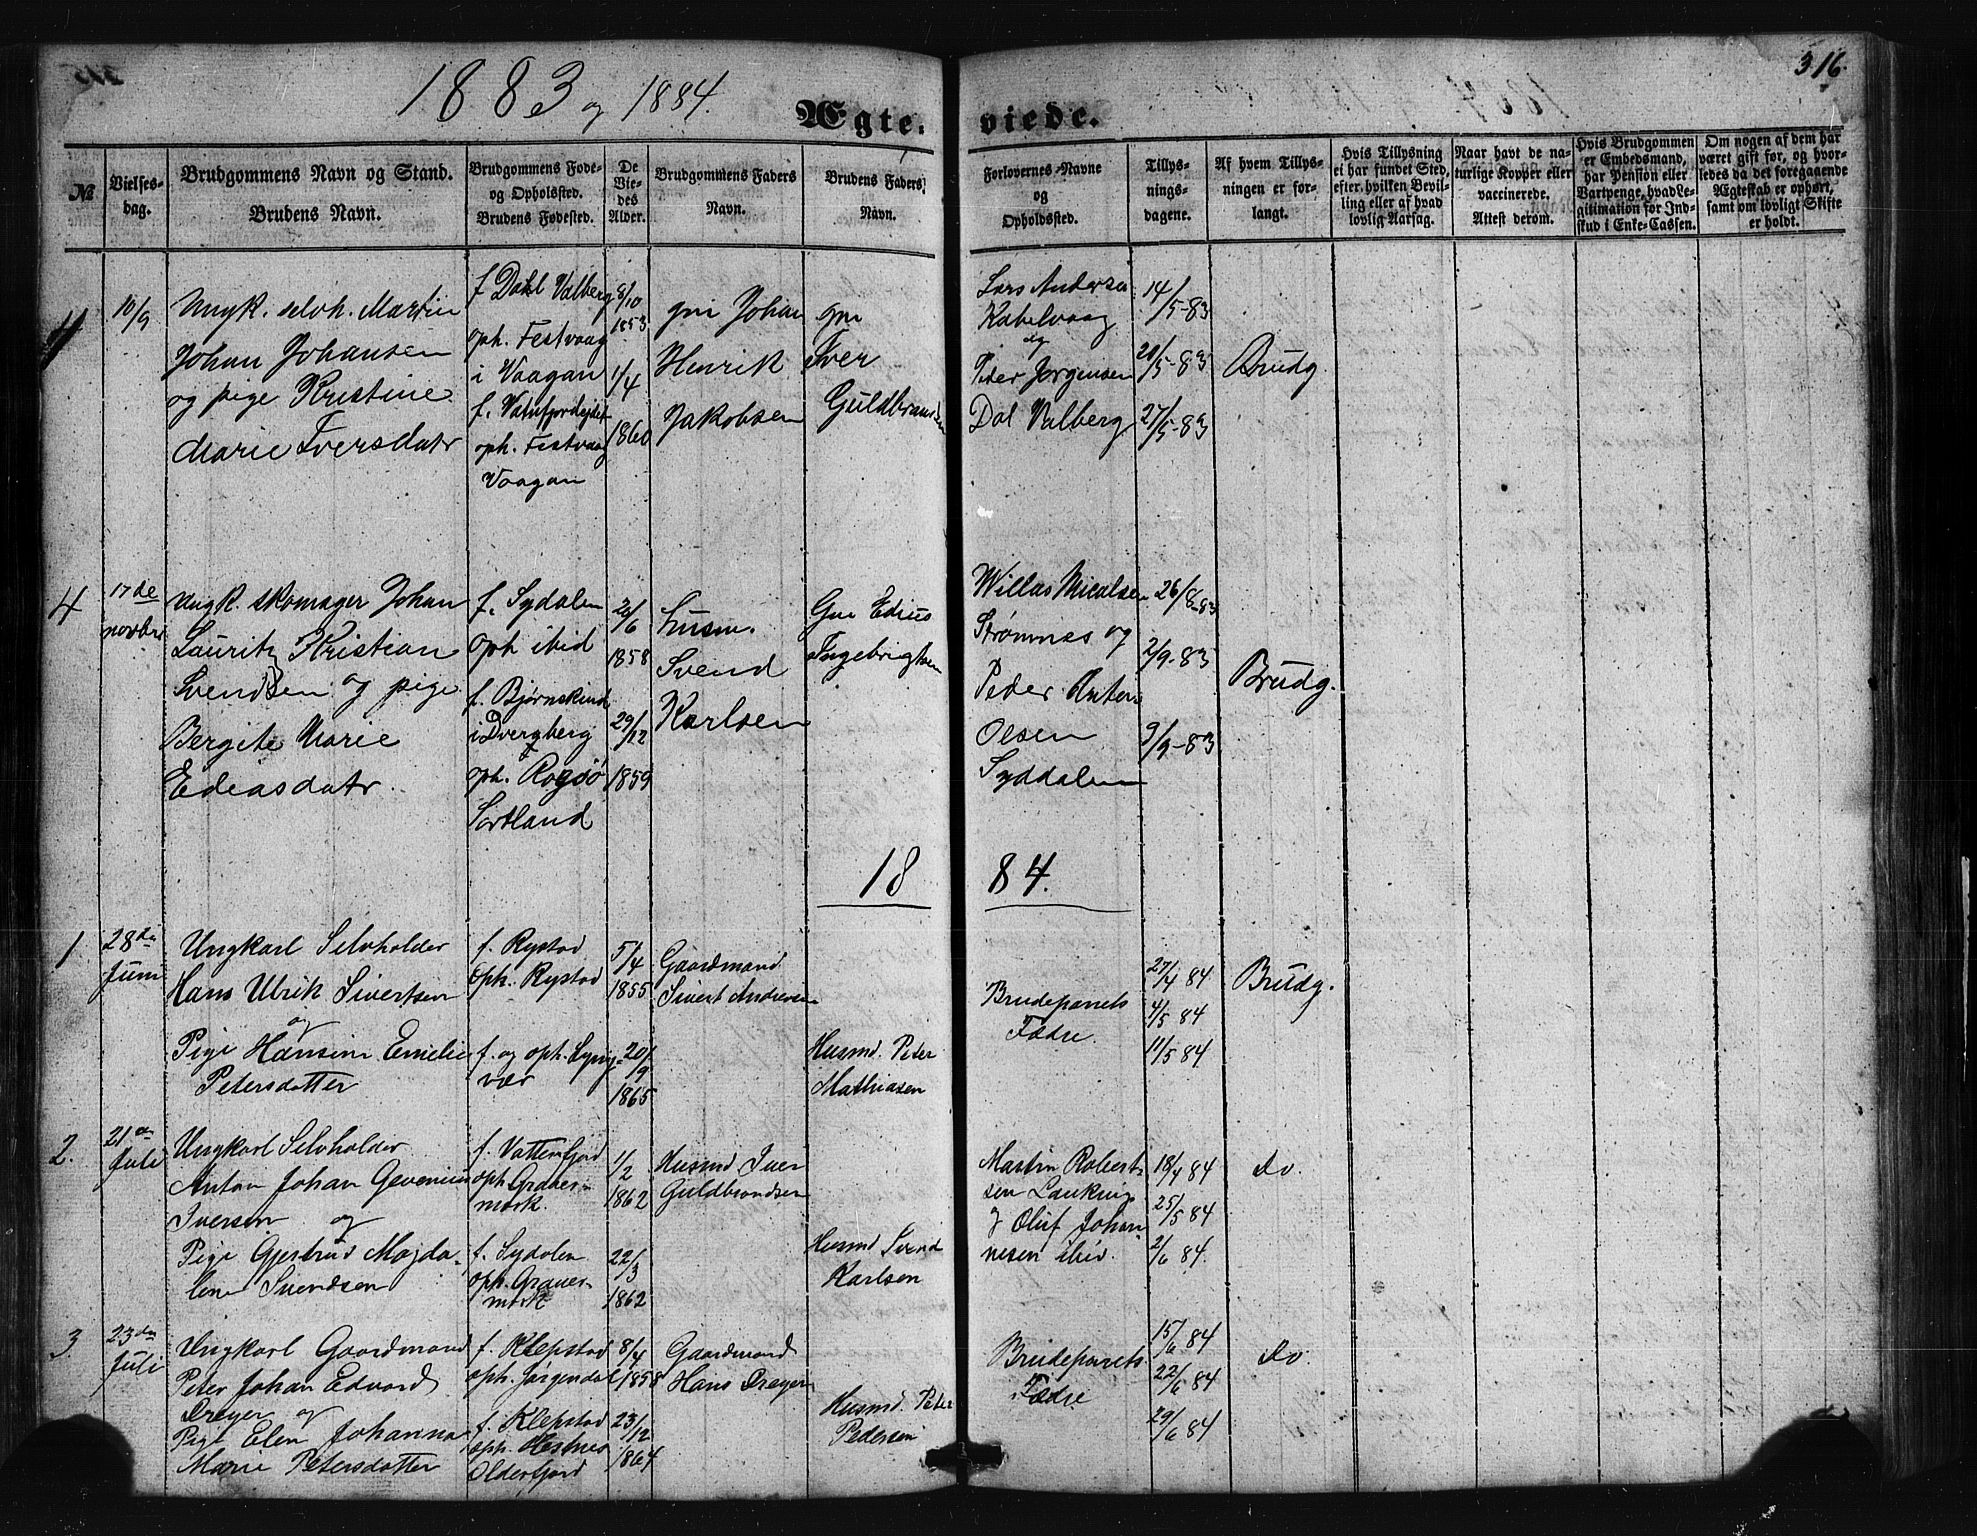 1883 og 1884.
Ægte-
viede.
316.
№
Vielses-
dag.
Brudgommens Navn og Stand.
Brudens Navn.
Brudgommens Føde-
og Opholssted.
Brudens Fødested.
De
Vie-
des
Alder.
Brudgommens Faders
Navn.
Brudens Faders
Navn.
Forlovernes Navne
og
Opholdssted.
Tillys-
nings-
dagene.
Af hvem Tillys-
ningen er for-
langt.
Hvis Tillysning
ei har fundet Sted,
efter hvilken Bevil-
ling eller af hvad
lovlig Aarsag.
Naar havt de na-
turlige Kopper eller
vaccinerede.
Attest derom.
Hvis Brudgommen
er Embedsmand,
har Pension eller
Vartpenge, hvad Le-
gitimation for Ind-
skud i Enke-Cassen.
Om nogen af dem har
været gift før, og hvor-
ledes da det foregaaende
Ægteskab er ophørt,
samt om lovligt Skifte
er holdt.
10/9
Ungk. selvh. Martin
Johan Johansen
og pige Kristine
Marie Iversdatr
f Dahl Valberg
oph. Festvaag
i Vaagan
f. Vatnfjordeidet
oph. Festvaag
Vaagan
8/10
1853
1/4
1860
gm Johan
Henrik
Jakobsen
gm
Iver
Guldbrandsen
Lars Andersen
Kabelvaag
og
Peder Jørgensen
Dal Valberg
14/5-83
20/5-83
27/5-83
Brudg.
4
17de
novbr
Ungk. skomager Johan
Lauritz Kristian
Svendsen og pige
Bergite Marie
Ediasdatr.
f. Sydalen
oph ibid
f. Bjørnskind
i Dverberg
oph.
Sortland
20/6
1858
29/12
1859
husm.
Svend
Karlsen
Gm Edius
Ingebrigtsen
Willas Micalsen
Strømnes og
Peder Anton
Olsen
Syddalen
26/8-83
2/9-83
9/9-83
Brudg.
1884.
1
28de
Juni
Ungkarl Selvholder
Hans Ulrik Sivertsen
og
Pige Hansine Emelie
Petersdatter
f. Rystad
oph. Rystad
f. og oph. Lyng-
vær
5/4
1855
20/9
1865
Gaardmand
Sivert Andersen
Husmd. Peter
Mathiasen
Brudeparrets
Fædre.
27/4 84
4/5 84
11/5 84
Brudg.
2.
21de
Juli
Ungkarl Selvholder
Anton Johan
Iversen og
Pige Gjertrud Magda-
lena Svendsen
f. Vatterfjord
oph Graver-
mark.
f. Sydalen
oph. Graver-
mark
1/2
1862
22/3
1862
Husmd Iver
Guldbrandsen
Husmd Svend
Karlsen
Martin Robert-
sen Laukvig
og Oluf Johan-
nesen ibid.
18/4 84
25/5 84
2/6 84.
do.
3
23de
Juli
Ungkarl Gaardmand
Peter Johan Edvard
Dreyer og
Pige Elen Johanna
Marie Petersdatter
f. Klepstad
oph. Jørgendal
f. Klepstad
oph. Hestnes
Olderfjord
8/4
1858
23/12
1864
Gaardmand
Hans Dreyer
Husmd. Peter
Pedersen
Brudeparrets
Fædre
15/6 84
22/6 84
29/6 84
do.